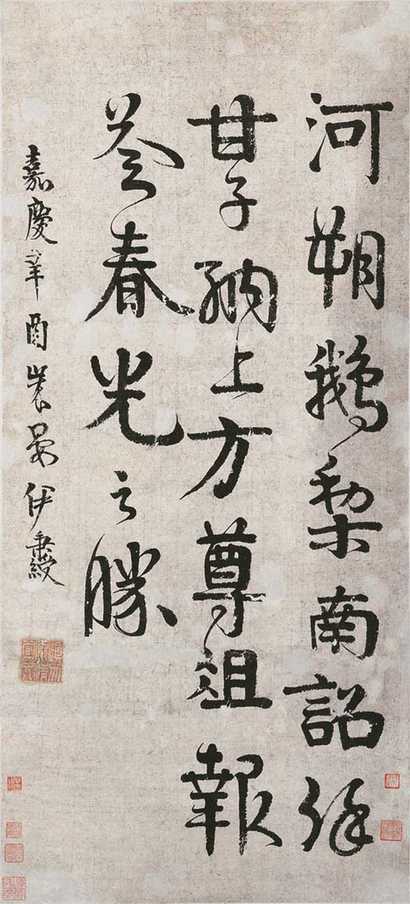 河朔鵝棃南詔餘
甘子納上方尊俎報
答春光之勝
嘉慶辛酉歲晏伊秉綬